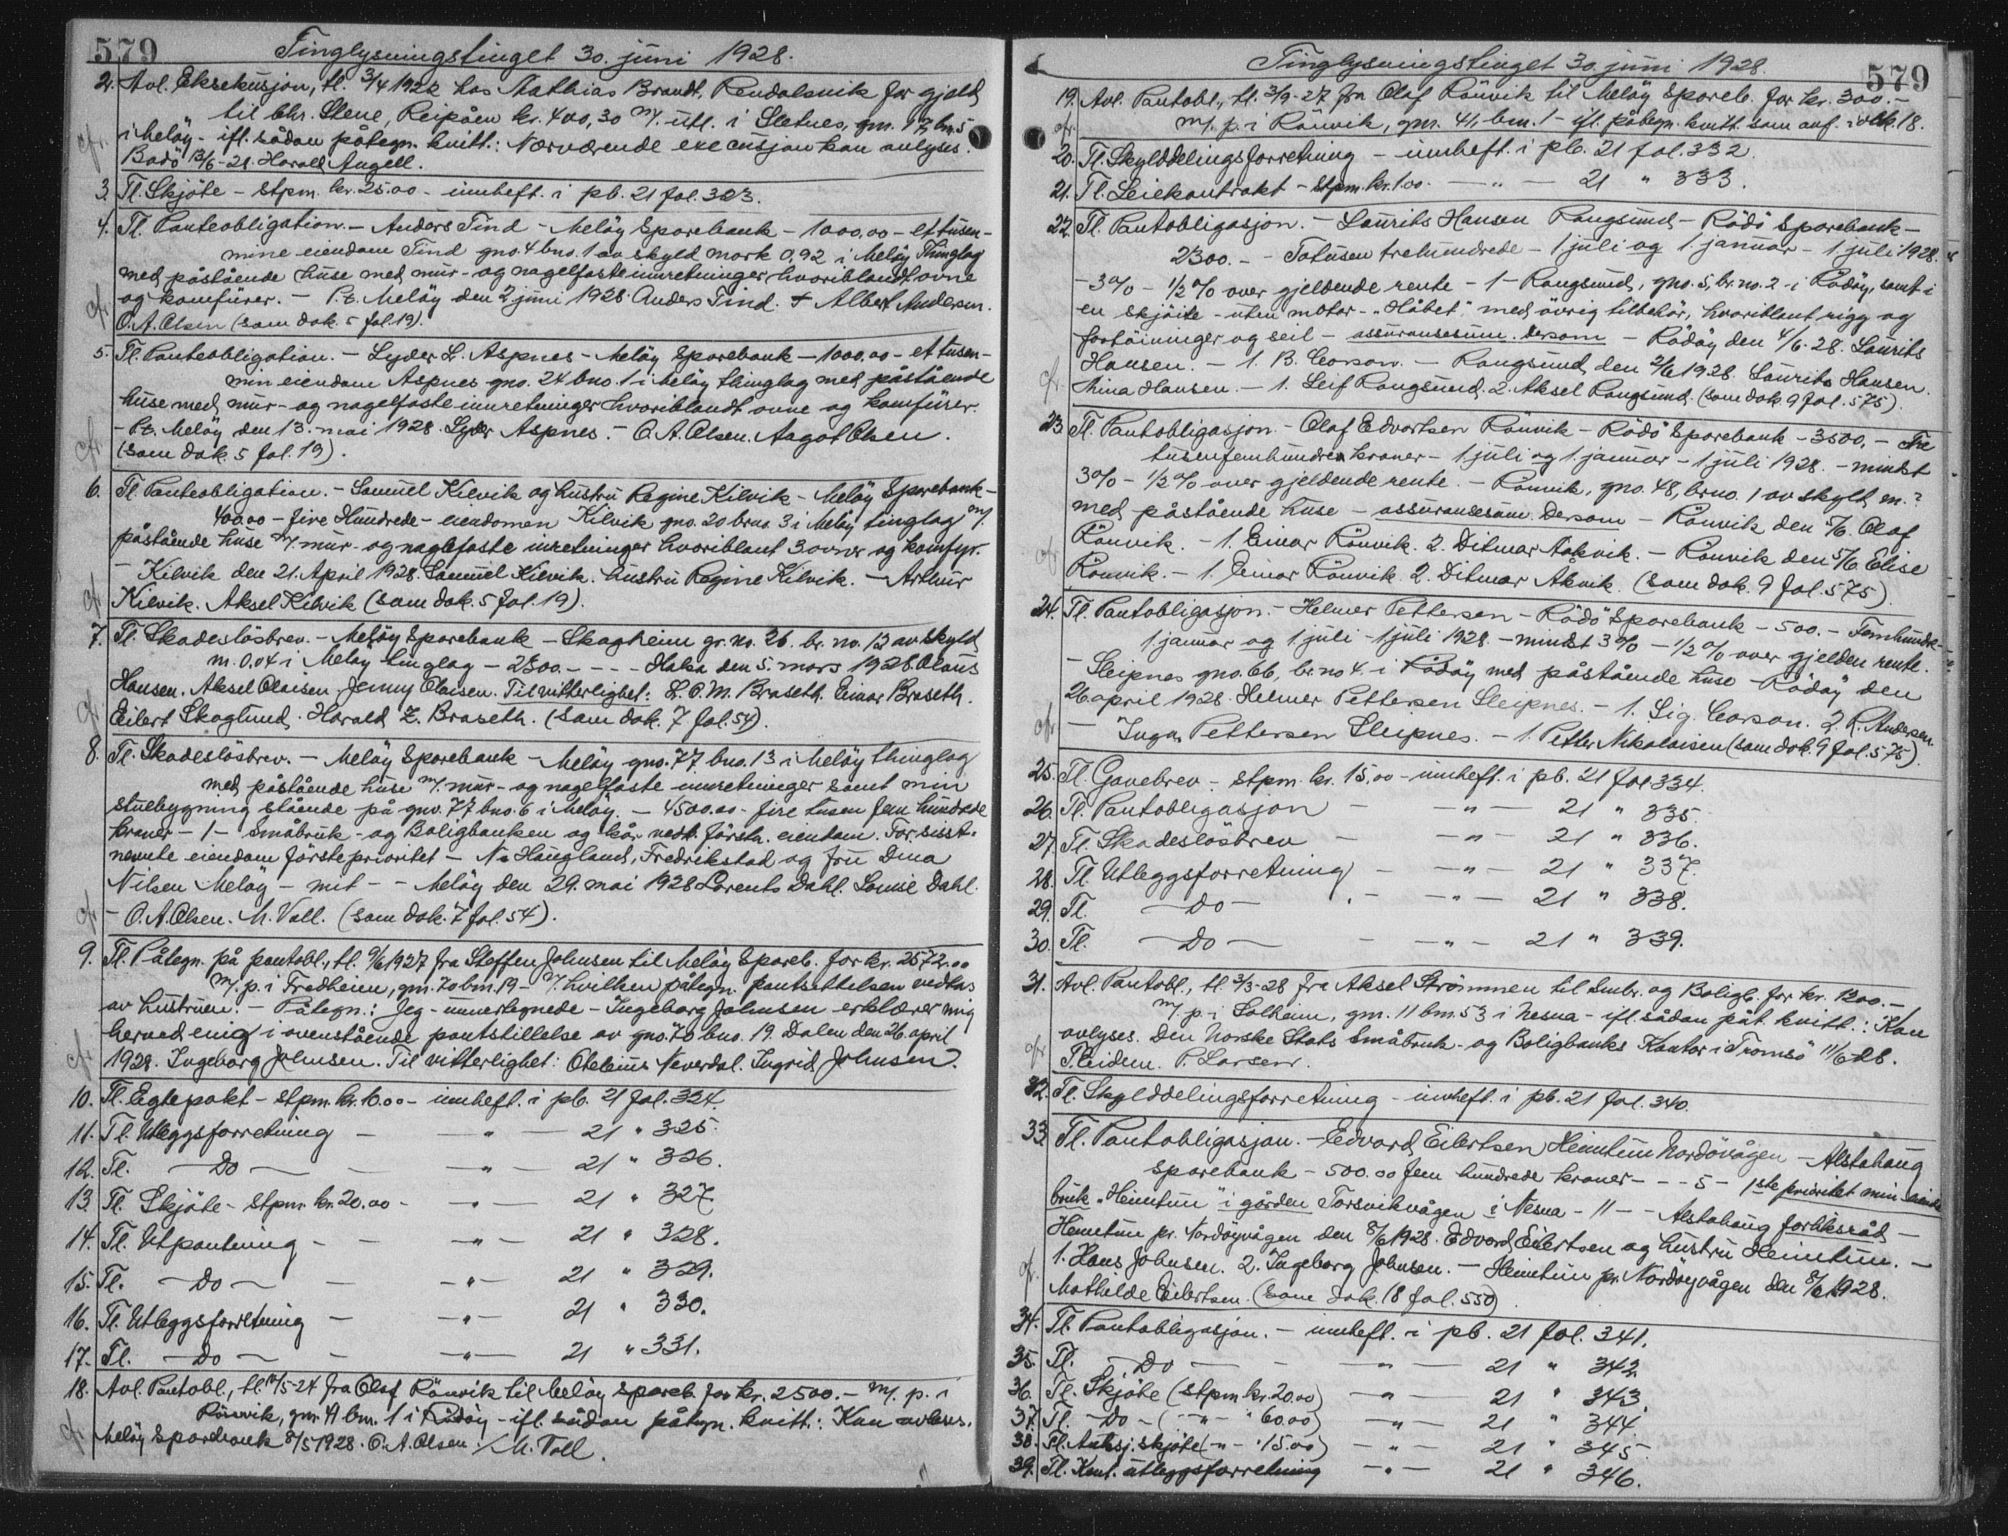 579
Tinglysningstinget 30. juni 1928.
2. Avl. Eksekusjon, tl. 3/4 1922 hos Mathias Brandt, Rendalsvik for gjeld
til Chr. Stene, Reipåen kr. 400,30 m/. utl. i Sletnes, gnr. 17, bnr. 5
i Meløy - ifl. sådan påtegn. kvitt.: Nærværende execusjon kan avlyses.
Bodö 13/6-28. Harald Angell.
3. Tl. Skjöte - Stpm. kr. 25.00 - innheft. i pb. 21 fol. 323.
4. Tl. Panteobligation. - Anders Tind - Meløy Sparebank - 1000,00 - et tusen -
mine eiendom Tind gno. 4 bno. 1 av skyld mark 0,92 i Meløy Thinglag
med påstående huse med mur- og nagelfaste innretninger hvoriblandt ovne
og komfürer. - P.t. Meløy den 2 juni 1928. Anders Tind. + Albert Andersen.
O. A. Olsen (som dok. 5 fol. 19).
5. Tl. Panteobligation. - Lyder L. Aspnes - Meløy Sparebank - 1000,00 - et tusen -
min eiendom Aspnes gno. 24 bno. 1 i Meløy thinglag med påstående
huse med mur- og nagelfaste innretninger hvoriblandt ovne og komfürer.
- P.t. Meløy den 13. mai 1928. Lyder Aspnes. - O. A. Olsen. Aagot Olsen.
(som dok. 5 fol. 19).
6. Tl. Panteobligation. - Samuel Kilvik og hustru Regine Kilvik - Meløy Sparebank -
400,00 - fire Hundrede - eiendomen Kilvik gno. 20 bno. 3 i Meløy tinglag m/.
påstående huse m/. mur- og naglefaste inretninger hvoriblant 3 ovner og komfyr.
- Kilvik den 21. April 1928. Samuel Kilvik. hustru Regine Kilvik. - Arthur
Kilvik. Aksel Kilvik (som dok. 5 fol. 19).
7. Tl. Skadeslösbrev. - Meløy Sparebank - Skagheim gr. no. 26. br. no. 12 av skyld
m. 0.04 i Meløy tinglag - 2500. - - - Halsa den 5. mars 1928. Olaus
Hansen. Aksel Olaisen. Jenny Olaisen. Til vitterlighet: L. P. M. Braseth. Einar Braseth.
Eilert Skoglund. Harald Z. Braseth. (som dok. 7 fol. 54).
8. Tl. Skadeslösbrev. - Meløy Sparebank - Meløy gno. 77 bno. 13 i Meløy thinglag
med påstående huse m/. mur- og nagelfaste innretninger samt min
stuebygning stående på gno. 77 bno. 6 i Meløy. - 4500.00 - fire tusen fem hundrede
kroner - 1 - Småbruk- og Boligbanken og kår vedk. förstn. eiendom. For sisst-
nevnte eiendom förste prioritet - N. Haugland, Fredrikstad og fru Dina
Nilsen Meløy - mit - - Meløy den 29. mai 1928 Lorents Dahl. Louise Dahl.
- O. A. Olsen. M. Voll. (som dok. 7 fol. 54).
9. Tl. Påtegn. på pantobl., tl. 9/6 1927 fra Steffen Johnsen til Meløy Spareb. for kr. 2572.00
m/. p. i Fredheim, gnr. 70 bnr. 19 - v/. hvilken påtegn. pantsettelsen vedtas
av hustruen. - Påtegn.: Jeg - unnertegnede - Ingeborg Johnsen erklærer mig
herved enig i ovenstående pantstillelse av gno. 70 bno. 19. Dalen den 26. april
1928. Ingeborg Johnsen. Til vitterlighet: Oteleius Neverdal. Ingrid Johnsen.
10. Tl. Egtepakt - Stpm. kr. 10.00 - innheft. i pb. 21 fol. 324.
11. Tl. Utleggsforretning - - " - 21 " 325.
12. Tl. - Do - - - " - 21 " 326.
13. Tl. Skjöte - Stpm. kr. 20.00 - - " - 21 " 327.
14. Tl. Utpantning - - - " - 21 " 328.
15. Tl. - Do - - - " - 21 " 329.
16. Tl. Utleggsforretning - - " - 21 " 330.
17. Tl. - Do - - - " - 21 " 331.
18. Avl. Pantobl., tl. 14/5-24 fra Olaf Rönvik til Meløy Spareb. for kr. 2500. - m/. p. i
Rönvik, gnr. 41 bnr. 1 i Rødøy - ifl. sådan påtegn. kvitt.: Kan avleses.
Meløy Sparebank 8/5 1928. O. A. Olsen. / M. Voll.
579
Tinglysningstinget 30. juni 1928.
19. Avl. Pantobl., tl. 3/9-27 fra Olaf Rönvik til Meløy Spareb. for kr. 300. -
m/. p. i Rönvik, gnr. 41, bnr. 1 - ifl. påtegn. kvitt. som anf. i dok. 18.
20. Tl. Skylddelingsforretning - innheft. i pb. 21 fol. 332.
21. Tl. Leiekontrakt - Stpm. kr. 1.00. - " - 21 " 333.
22. Tl. Pantobligasjon. - Laurits Hansen Rangsund - Rödö Sparebank -
2300. - - Totusen trehundrede - 1 juli og 1 januar - 1 juli 1928.
- 3% - 1/2 % over gjeldende rente - 1 - Rangsund, gno. 5, br. no. 2 - i Rødøy, samt i
en skjöite - uten motor - "Håbet", med övrig tilbehör, hvoriblant rigg og
fortöininger og seil - assuransesum. Dersom - Rødøy den 4/6-28. Laurits
Hansen. - 1. B. Corson. - Rangsund den 2/6 1928. Laurits Hansen.
Thina Hansen. - 1. Leif Rangsund. 2. Aksel Rangsund. (som dok. 9 fol. 575).
23. Tl. Pantobligasjon. - Olaf Edvartsen Rönvik - Rödö Sparebank - 3500. - Tre
tusenfemhundre kroner - 1 juli og 1. januar - 1 juli 1928. - mindst
3% - 1/2 % over gjeldende rente. - Rönvik, gno. 48, brno. 1 av skyld m. ?
med påstående huse - assuransesum. Dersom - Rönvik den 5/6. Olaf
Rönvik. - 1. Einar Rönvik. 2. Ditmar Åkvik. - Rönvik den 5/6 Elise
Rönvik. - 1. Einar Rönvik. 2. Ditmar Åkvik. (som dok. 9 fol. 575).
24. Tl. Pantobligasjon. - Helmer Pettersen - Rödö Sparebank - 500. - Femhundre -
1 januar og 1 juli - 1 juli 1928. - mindst 3% - 1/2 % over gjelden rente.
- Sleipnes gno. 66, br. no 4. i Rødøy med påstående huse - Rødøy den
26 april 1928. Helmer Pettersen Sleipnes. - 1. Sig. Corson. 2. R. Andersen.
- Inga Pettersen Sleipnes. - 1. Petter Nikolaisen (som dok. 9 fol. 575).
25. Tl. Gavebrev - stpm. kr. 15.00 - innheft. i pb. 21 fol 334.
26. Tl. Pantobligasjon - - " - 21 " 335.
27. Tl. Skadeslösbrev - - " - 21 " 336.
28. Tl. Utleggsforretning - - " - 21 " 337.
29. Tl. - Do - - - " - 21 " 338.
30. Tl. - Do - - - " - 21 " 339.
31. Avl. Pantobl., tl 3/3-28 fra Aksel Strömmen til Smbr. og Boligb. for kr. 1200. -
m/. p. i Solheim, gnr. 11 bnr. 53 i Nesna - ifl. sådan påt. kvitt.: Kan
avlyses. Den Norske Stats Småbruk- og Boligbanks Kontor i Tromsö 11/6 28.
P. Larsen.
32. Tl. Skylddelingsforretning - innheft. i pb. 21 fol. 340.
33. Tl. Pantobligasjon. - Edvard Eilertsen Heimtun Nordövågen - Alstahaug
Sparebank - 500.00 fem hundrede kroner - - - 5 - 1ste prioritet min
bruk "Heimtun" i gården Torsvikvågen i Nesna - 11 - - Alstahaug forliksråd -
Heimtun pr. Nordøyvågen den 8/6 1928. Edvard Eilertsen og hustru Heimtun. -
1. Hans Johnsen. 2. Ingeborg Johnsen. - Heimtun pr. Nordøyvågen den 8/6 1928.
Mathelde Eilertsen. (som dok. 18 fol. 550)
34. Tl. Pantobligasjon. - innheft. i pb. 21 fol. 341.
35. Tl. - Do - - - " - 21 " 342
36. Tl. Skjöte (stpm kr. 20.00) - " - 21 " 343.
37. Tl. - Do - ( - " - " 60.00) - " - 21 " 344.
38. Tl. Auksj. skjöte (- " - " 15.00) - " - 21 " 345.
39. Tl. Kont. utleggsforretning - " - 21 " 346.